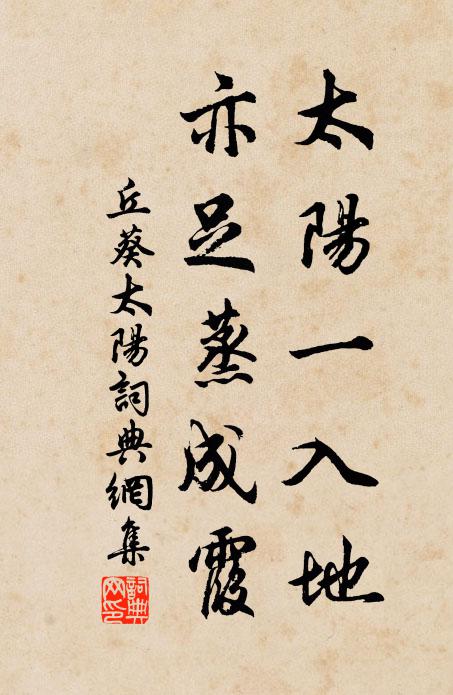 太陽一入地
亦足蒸成霞
丘葵太陽詞典網集
詞典網印